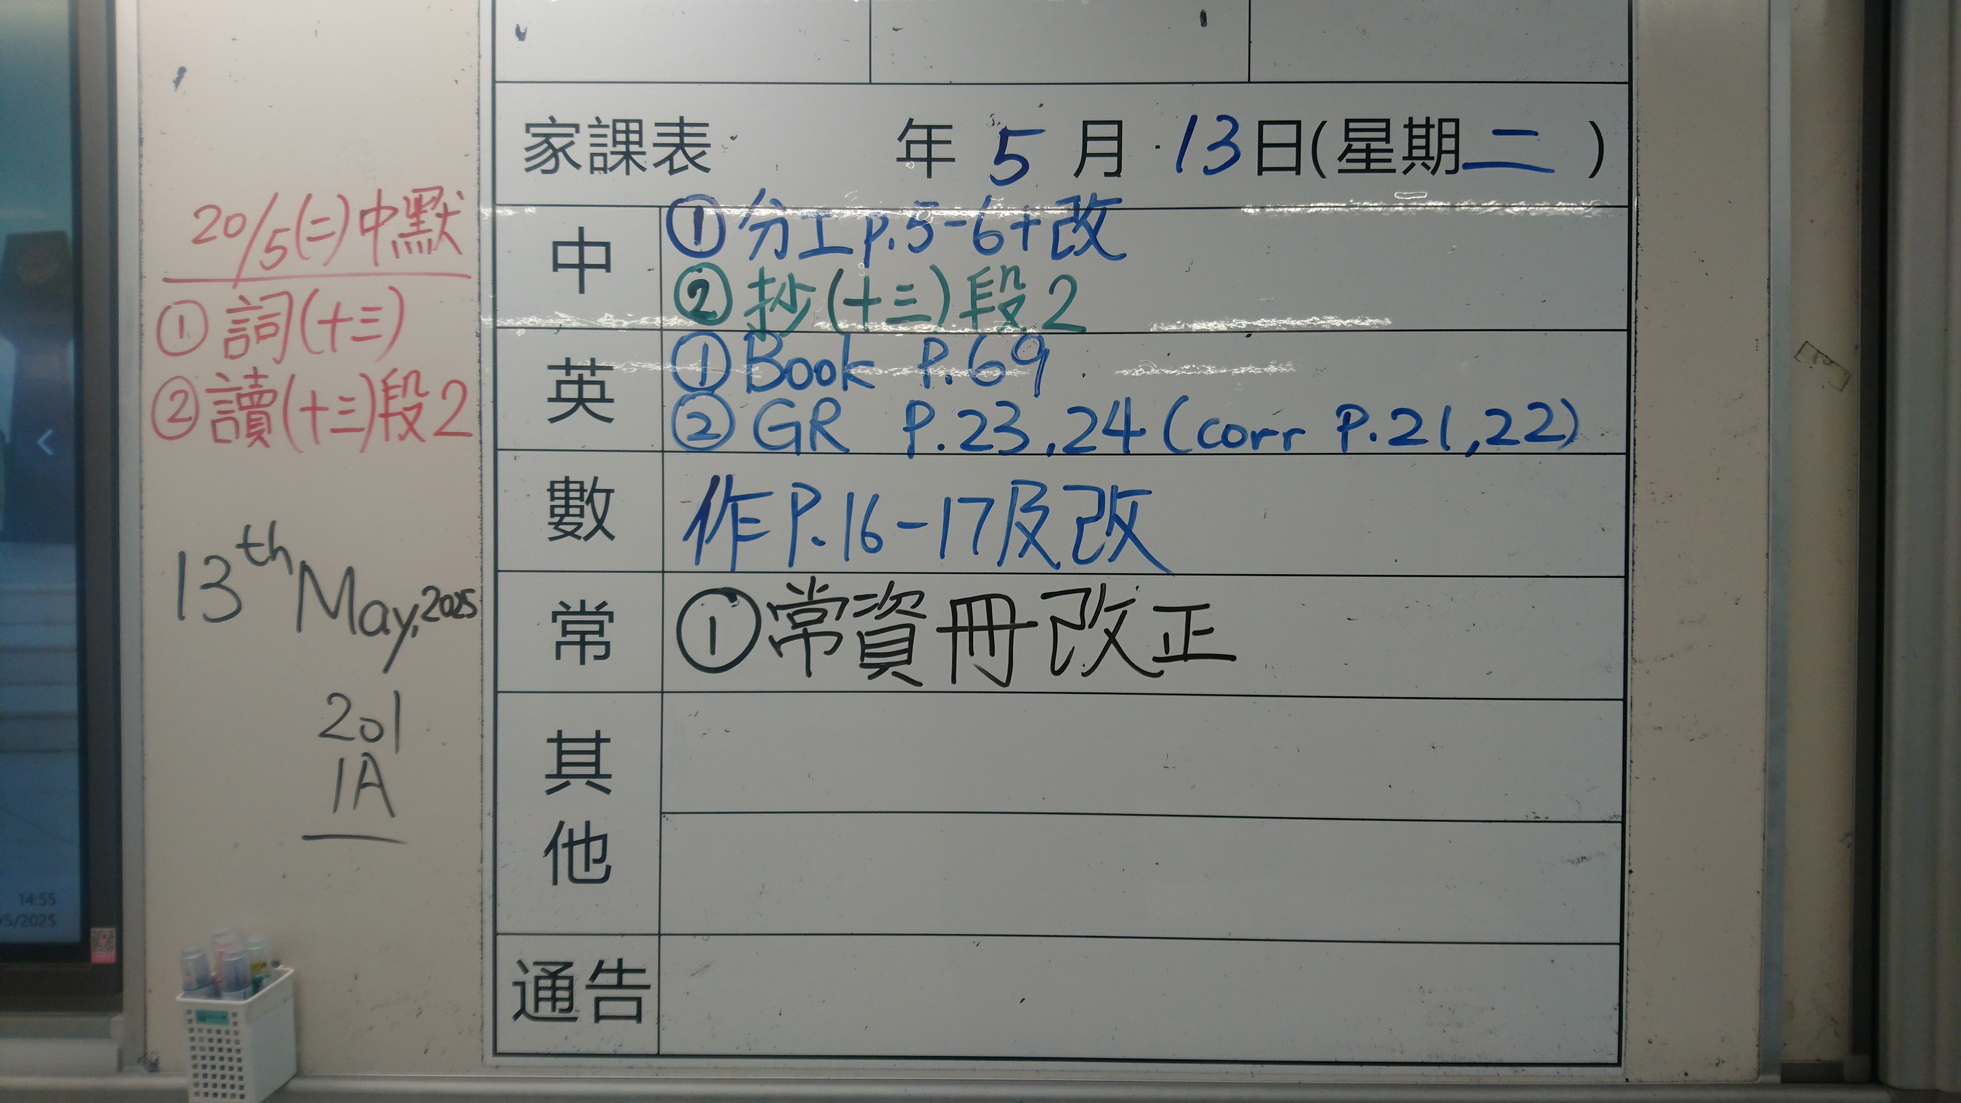 家課表 年 5 月 13 日(星期二)
中
①分工p.5-6+改
②抄(十三)段2
英
①Book P.69
②GR P.23,24(corr P.21,22)
數
作P.16-17及改
常
①常資冊改正
其他
通告
20/5(二)中默
①詞(十三)
②讀(十三)段2
13th May,2025
201
1A
14:55
/5/2025